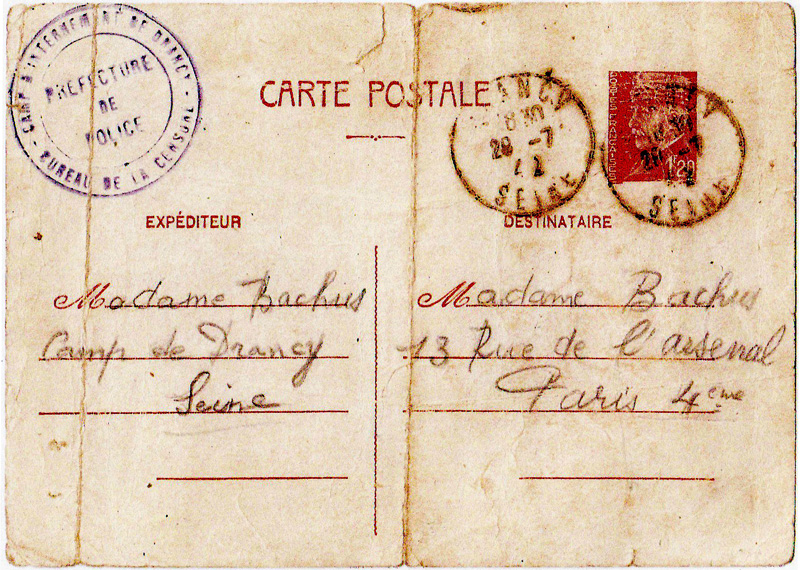 CAMP D'INTERNEMENT DE DRANCY
PRÉFECTURE
DE
POLICE
BUREAU DE LA CENSURE
CARTE POSTALE
DRANCY
8 30
20 -7
42
SEINE
DRANCY
8 30
20 -7
42
SEINE
POSTES FRANÇAISES
1F20
EXPÉDITEUR
Madame Bachus
Camp de Drancy
Seine
DESTINATAIRE
Madame Bachus
13 Rue de l'arsenal
Paris 4eme